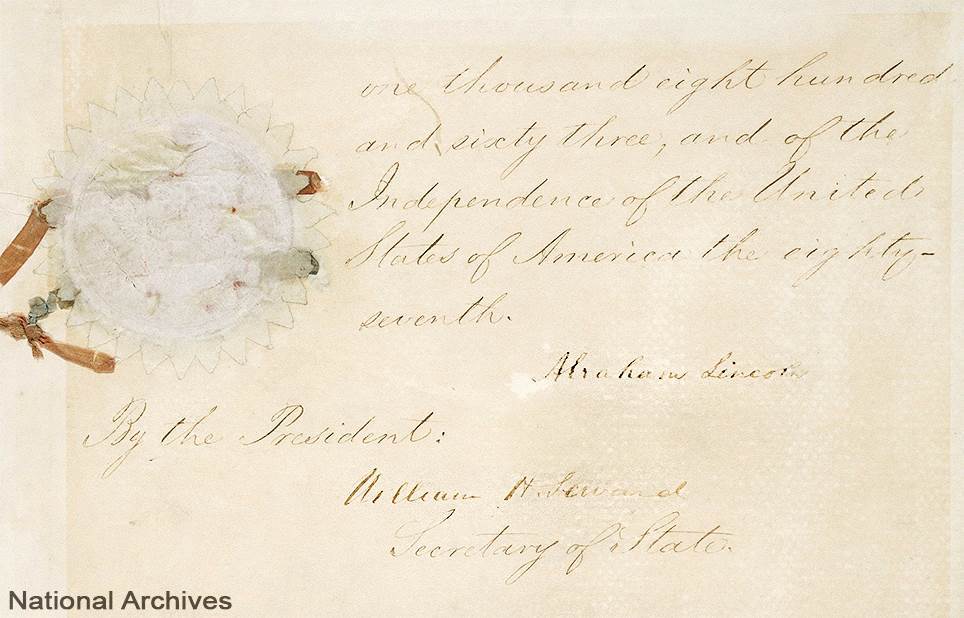 one thousand eight hundred
and sixty three, and of the
Independence of the United
States of America the eighty-
seventh.
Abraham Lincoln
By the President:
William H. Seward
Secretary of State.
National Archives